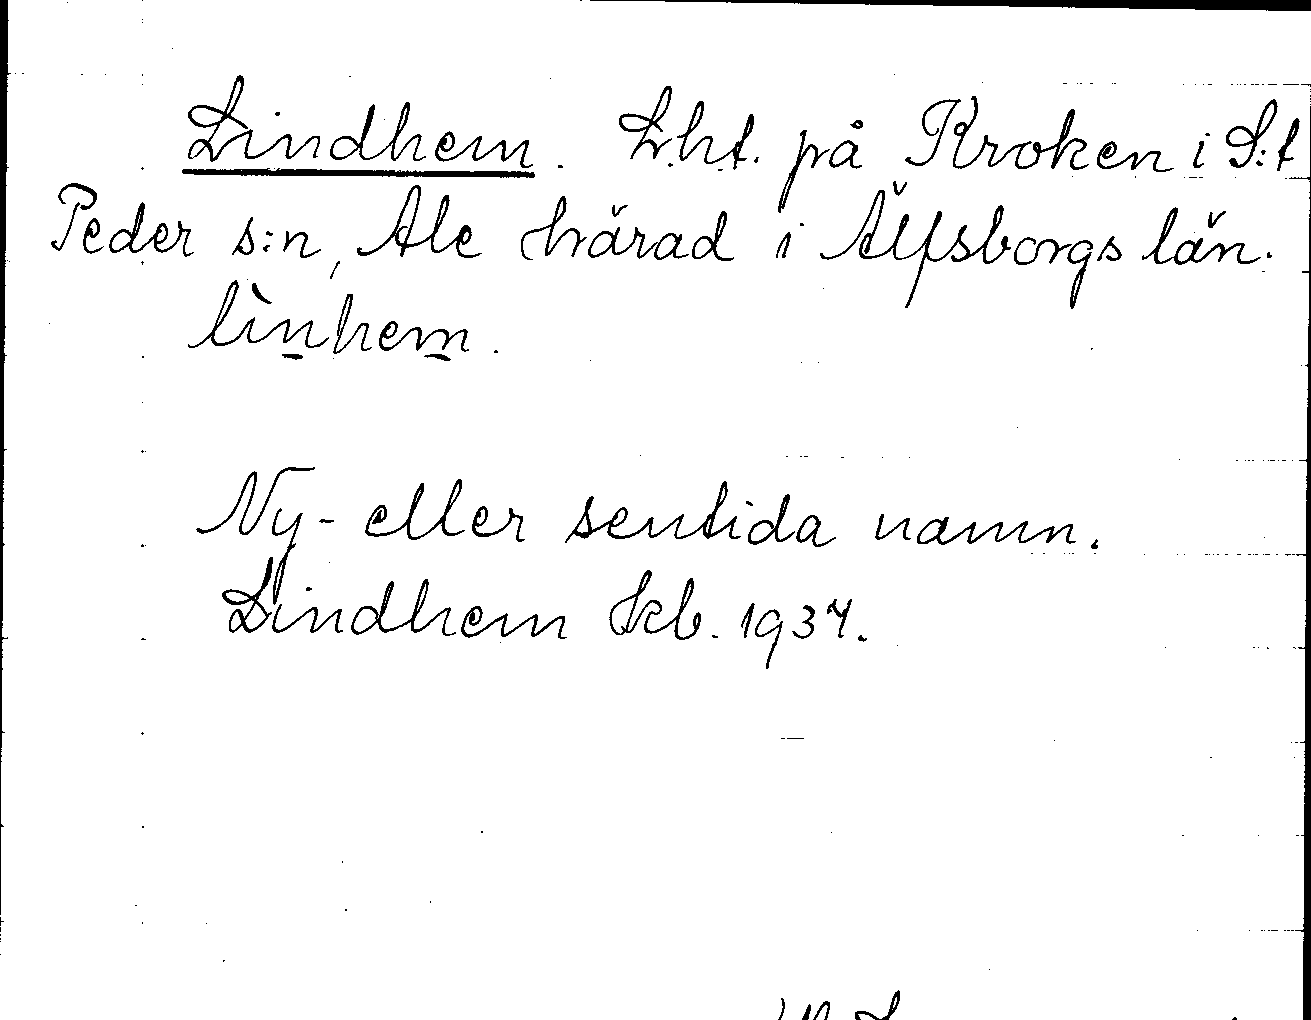 Lindhem. Lht. på Kroken i S:t
Peder s:n, Ale härad i Älfsborgs län.
lìn̲hem̲.
Ny- eller sentida namn.
Lindhem kb. 1937.